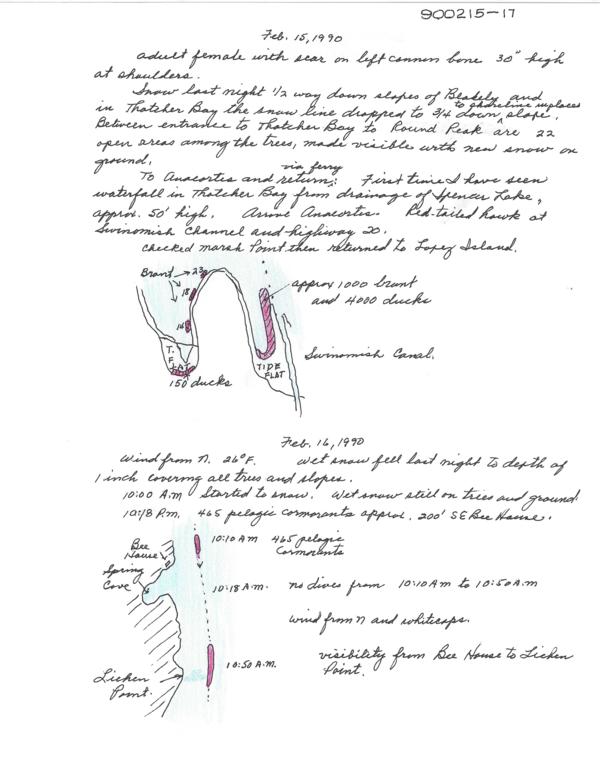 900215-17
Feb. 15, 1990
adult female with scar on left cannon bone 30" high
at shoulders.
Snow last night 1/2 way down slopes of Blakely and
to shoreline inplaces
in Thatcher Bay the snow line dropped to 3/4 down ^ slope.
Between entrance to Thatcher Bay to Round Peak are 22
open areas among the trees, made visible with new snow on
ground.
via ferry
To Anacortes and return; First time I have seen
waterfall in Thatcher Bay from drainage of Spencer Lake,
approx. 50' high. Arrive Anacortes. Red-tailed hawk at
Swinomish Channel and highway 20.
Checked Marsh Point then returned to Lopez Island.
Brant → 23
18
16
approx 1000 brant
and 4000 ducks
T.
FLAT
150 ducks
TIDE
FLAT
Swinomish Canal.
Feb. 16, 1990
Wind from N. 26°F. Wet snow fell last night to depth of
1 inch covering all trees and slopes.
10:00 A.m Started to snow. Wet snow still on trees and ground.
10:18 P.m. 465 pelagic cormorants approx. 200' SE Bee House.
Bee
House
Spring
Cove
10:10 Am 465 pelagic
Cormorants
10:18 A.m. no dives from 10:10 Am to 10:50 Am
wind from N and whitecaps.
10:50 A.M. visibility from Bee House to Lichen
Point.
Lichen
Point.